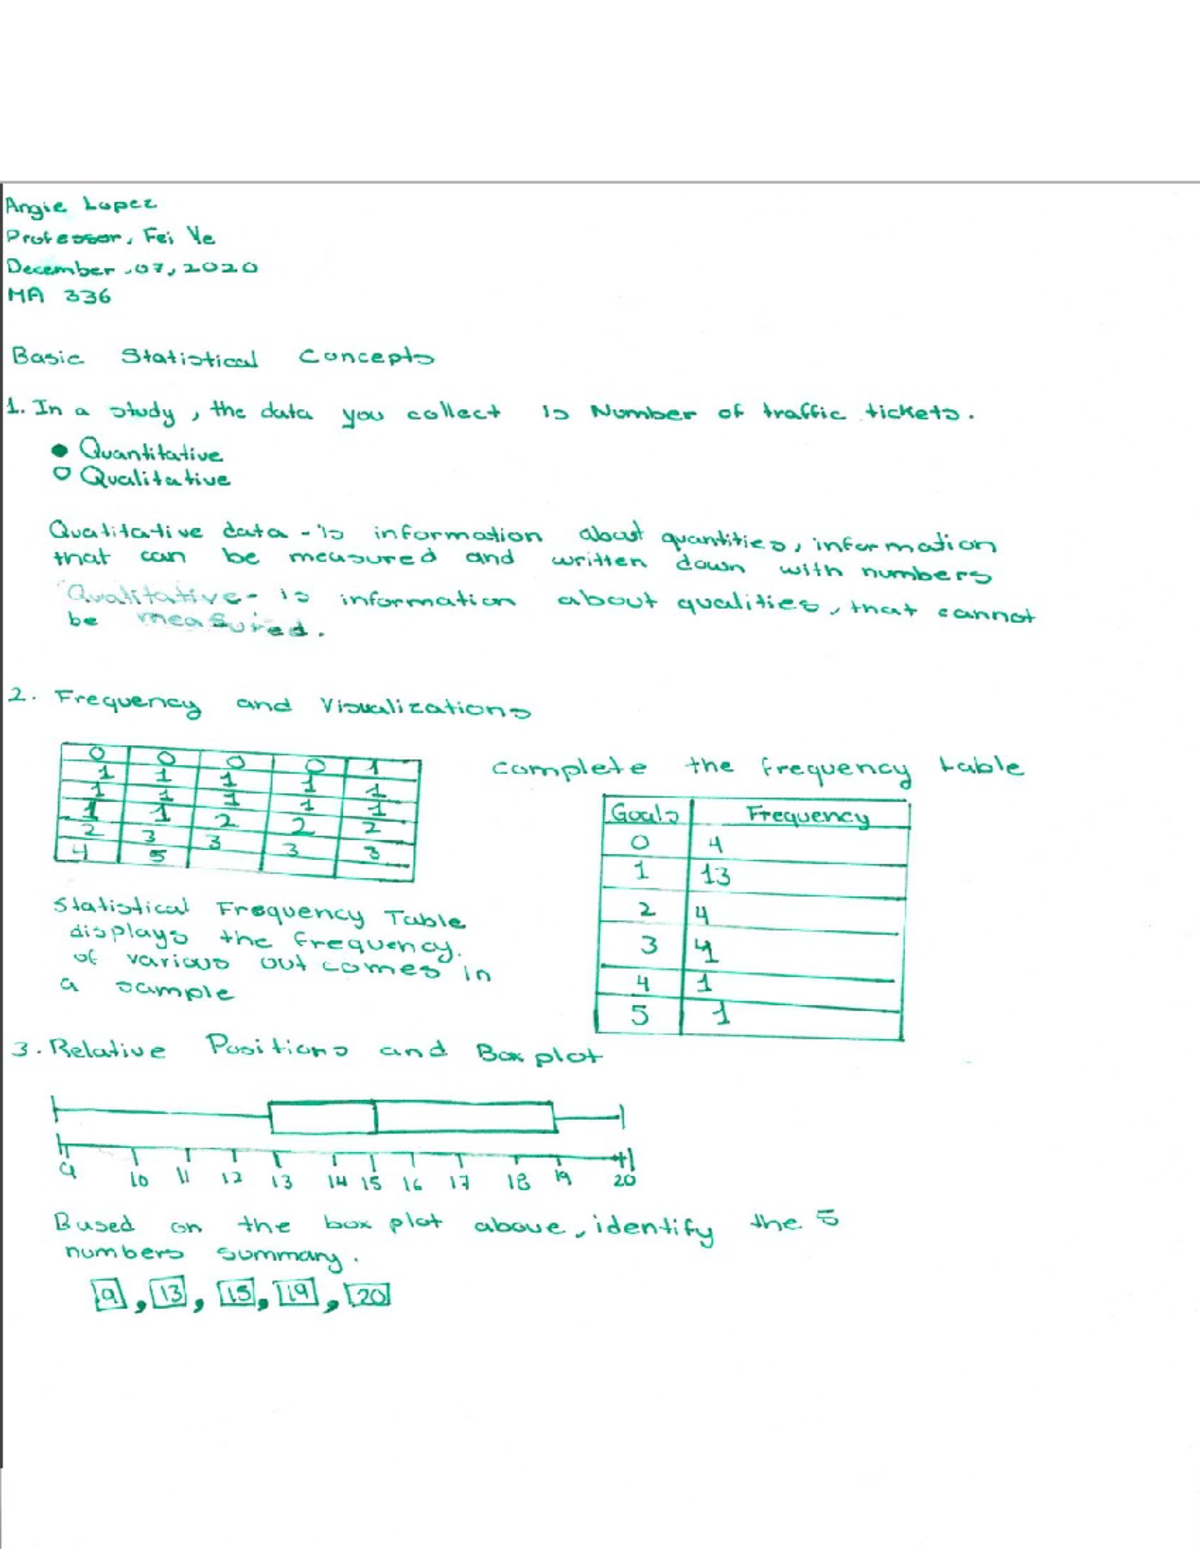 Angie Lopez
Professor, Fei Ye
December .07, 2020
MA 336
Basic Statistical Concepts
1. In a study, the data you collect is Number of traffic tickets.
Quantitative
Qualitative
Quatitative data - is information about quantities, information
that can be measured and written down with numbers
Qualitative - is information about qualities, that cannot
be measured.
2. Frequency and Visualizations
0 0 0 0 1
1 1 1 1 1
1 1 1 1 1
1 1 2 2 2
2 3 3 3 3
4 5
complete the frequency table
Goals Frequency
0 4
1 13
2 4
3 4
4 1
5 1
Statistical Frequency Table
displays the frequency.
of various outcomes in
a sample
3. Relative Positions and Box plot
9 10 11 12 13 14 15 16 17 18 19 20
Based on the box plot above, identify the 5
numbers summary.
9, 13, 15, 19, 20